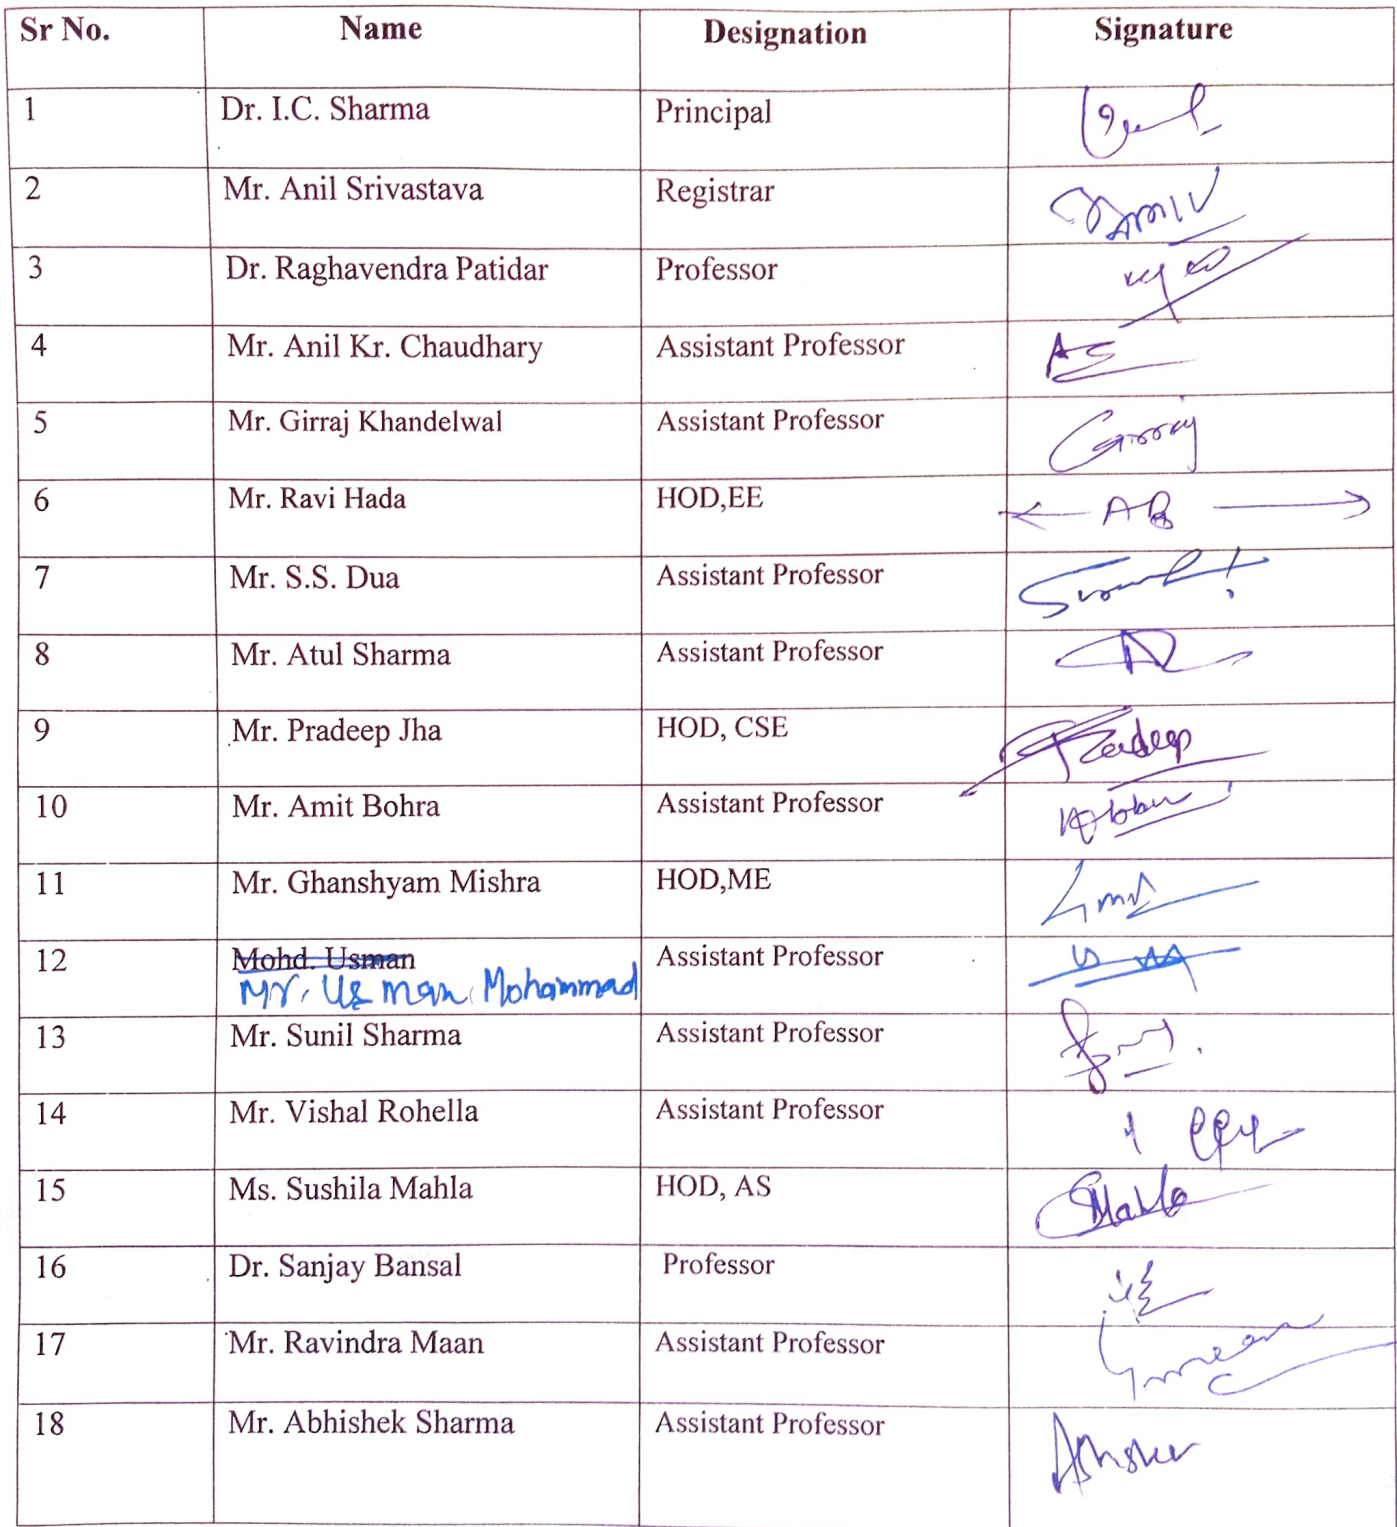 Sr No. Name Designation Signature
1 Dr. I.C. Sharma Principal
2 Mr. Anil Srivastava Registrar
3 Dr. Raghavendra Patidar Professor
4 Mr. Anil Kr. Chaudhary Assistant Professor AS
5 Mr. Girraj Khandelwal Assistant Professor Girraj
6 Mr. Ravi Hada HOD,EE AB
7 Mr. S.S. Dua Assistant Professor
8 Mr. Atul Sharma Assistant Professor
9 Mr. Pradeep Jha HOD, CSE Pradeep
10 Mr. Amit Bohra Assistant Professor
11 Mr. Ghanshyam Mishra HOD,ME
12 Mohd. Usman Assistant Professor
Mr. Usman Mohammad
13 Mr. Sunil Sharma Assistant Professor
14 Mr. Vishal Rohella Assistant Professor
15 Ms. Sushila Mahla HOD, AS SMahla
16 Dr. Sanjay Bansal Professor
17 Mr. Ravindra Maan Assistant Professor
18 Mr. Abhishek Sharma Assistant Professor